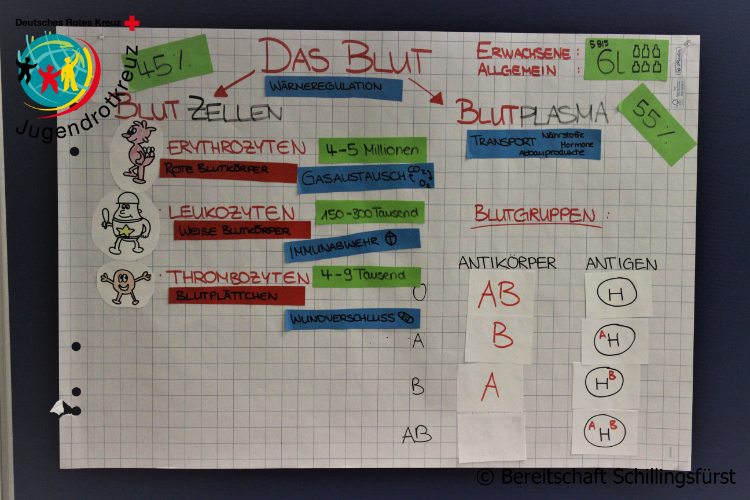 Deutsches Rotes Kreuz
Jugendrotkreuz
45%
DAS BLUT
WÄRMEREGULATION
ERWACHSENE:
ALLGEMEIN :
5 BIS
6L
BLUT ZELLEN
BLUTPLASMA
55%
TRANSPORT Nährstoffe
Hormone
Abbauprodukte
ERYTHROZYTEN
4-5 Millionen
ROTE BLUTKÖRPER
GASAUSTAUSCH
LEUKOZYTEN
150-300 Tausend
WEIßE BLUTKÖRPER
IMMUNABWEHR
THROMBOZYTEN
4-9 Tausend
BLUTPLÄTTCHEN
WUNDVERSCHLUSS
BLUTGRUPPEN :
ANTIKÖRPER ANTIGEN
O AB H
A B A H
B A H B
AB A H B
© Bereitschaft Schillingsfürst